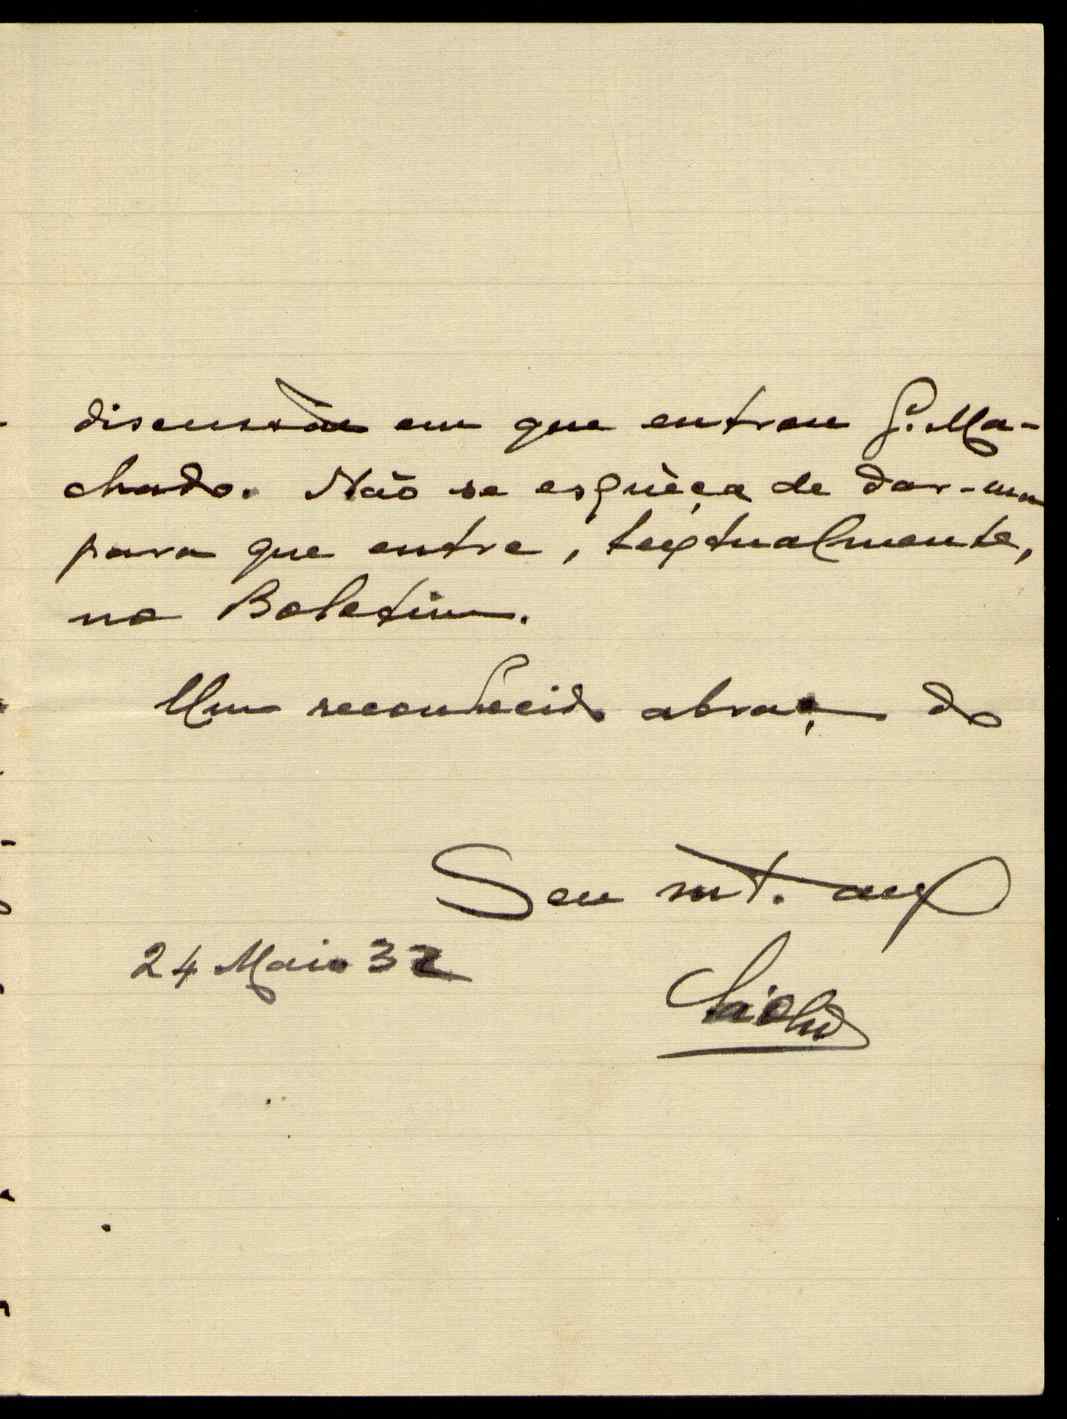 discussão em que entrou G. Ma-
chado. Não se esquèça de dar-ma
para que entre, textualmente,
no Boletim.
Um reconhecido abraço do
Seu mt.
24 Maio 32